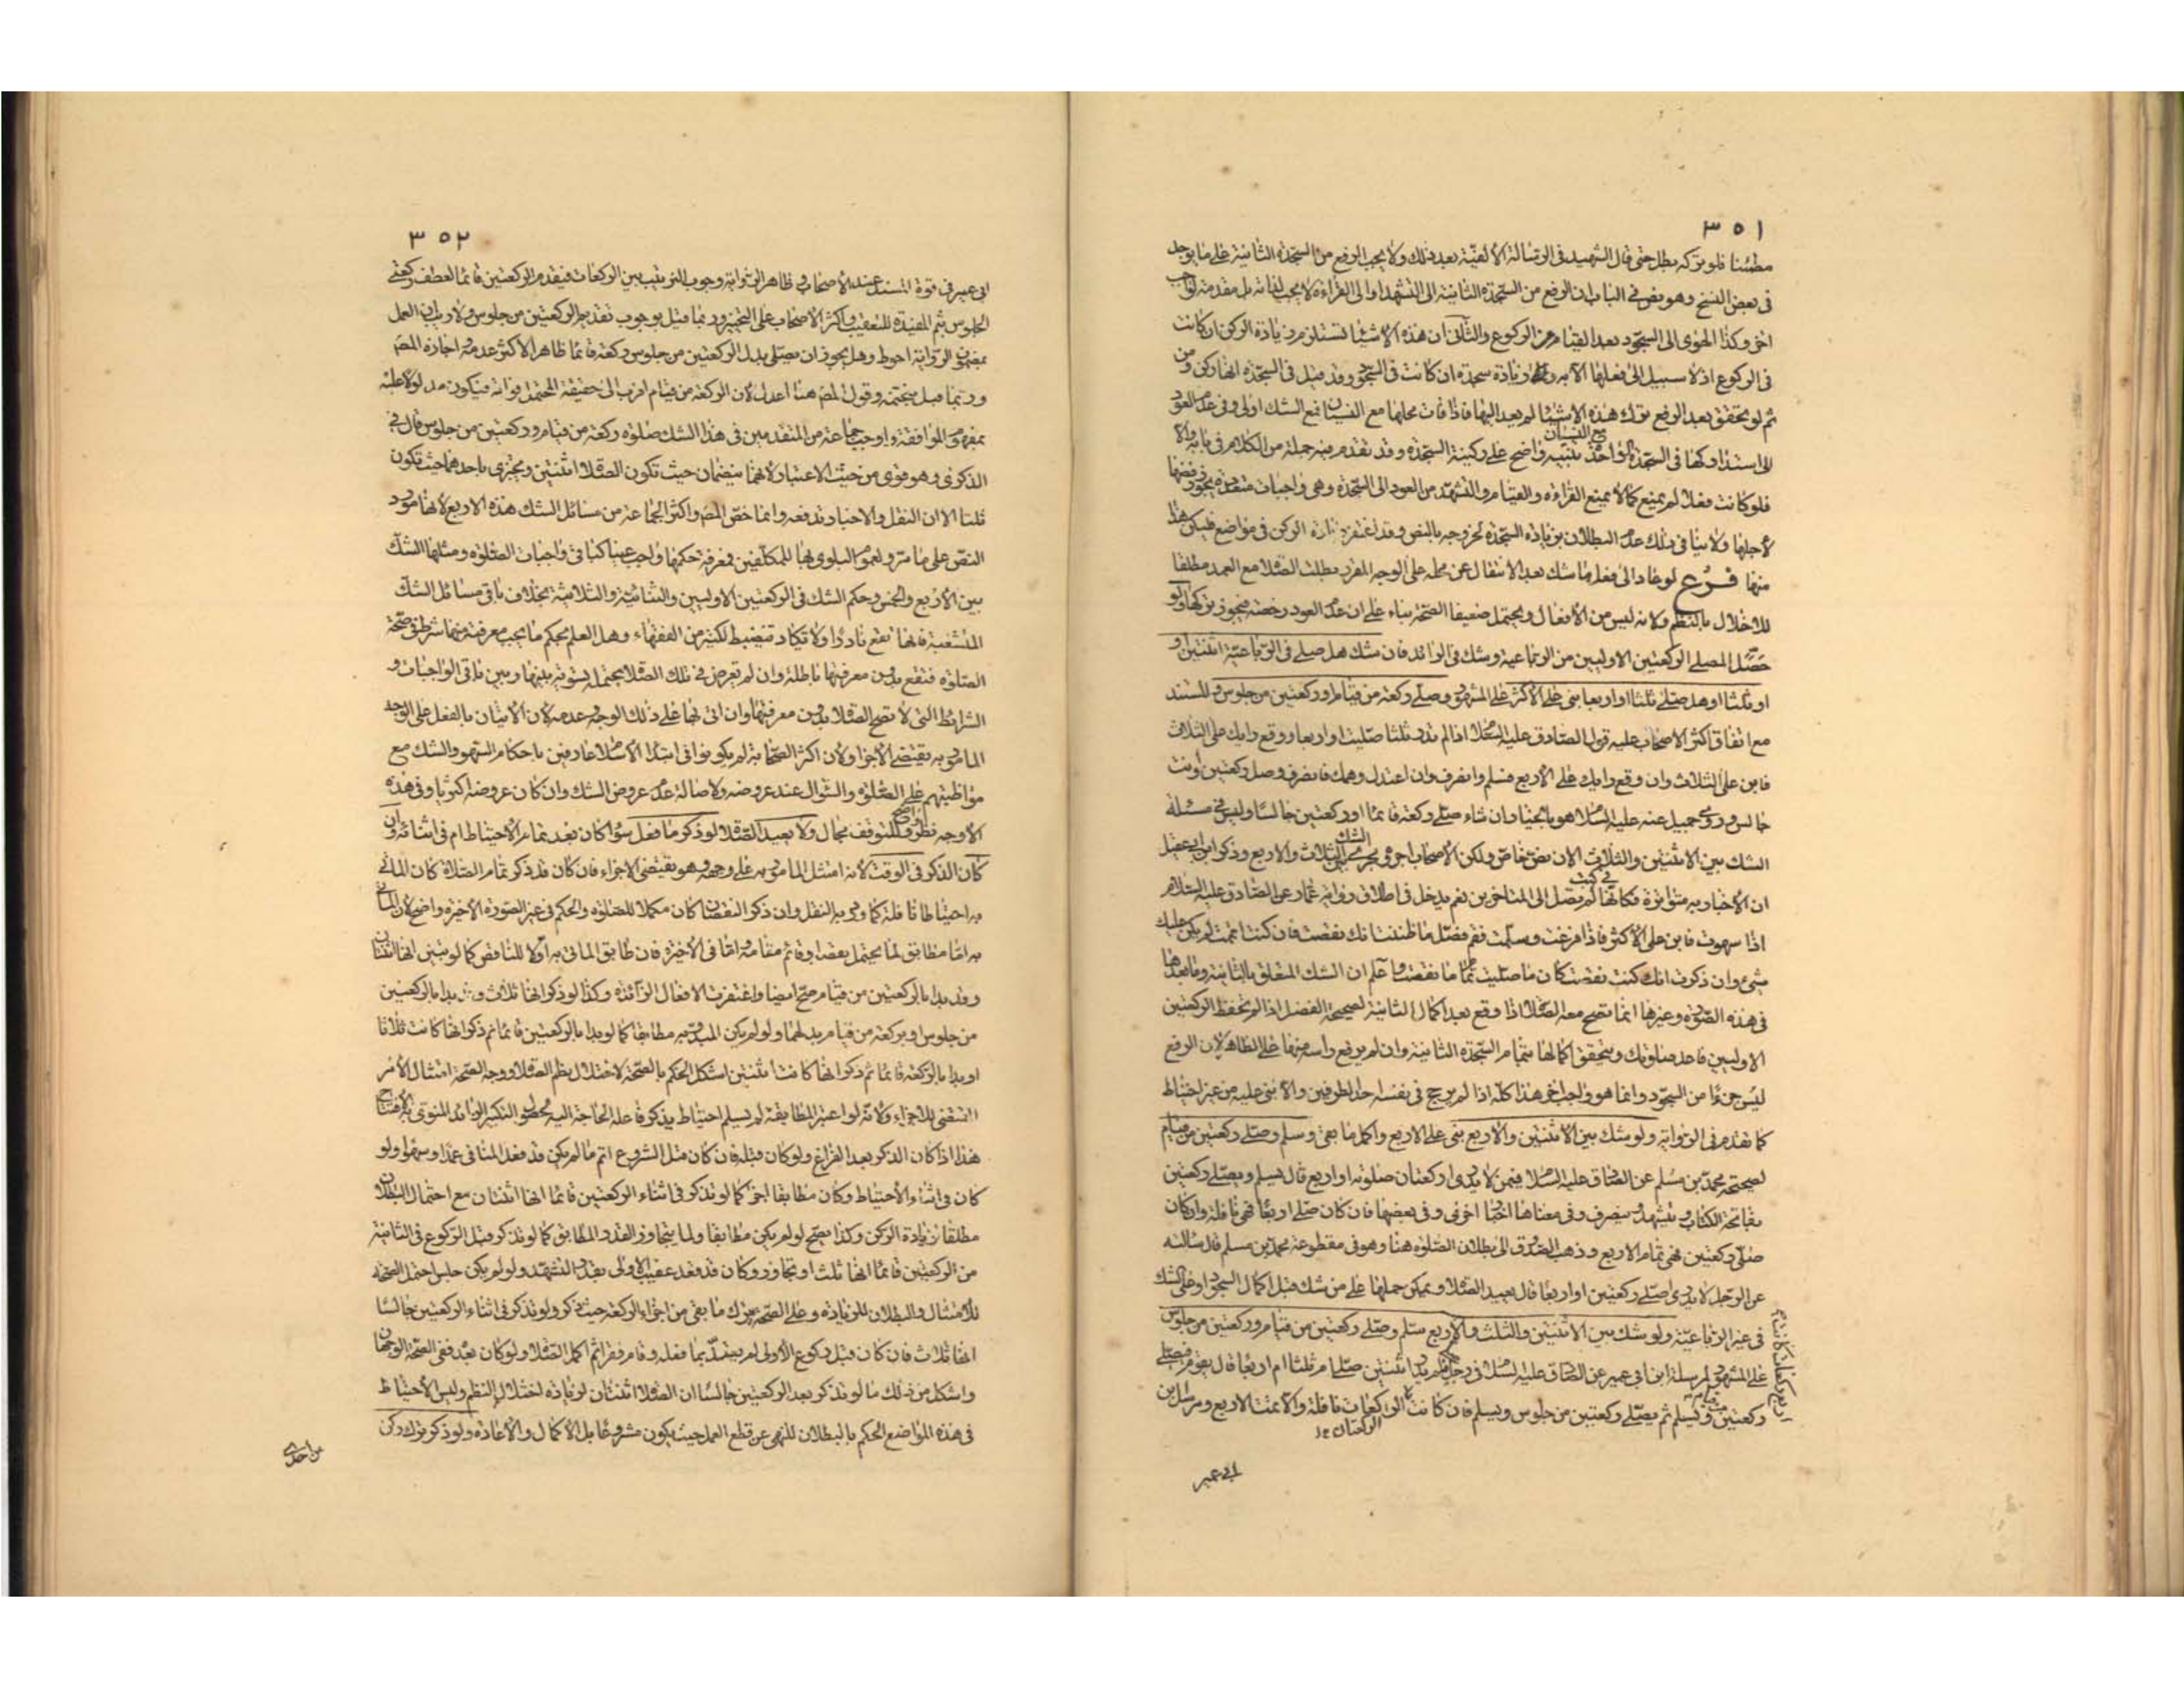 ٣٥١
مطمئنا فلو تركه بطل حتى قال الشهيد في الرسالة الألفية بعد ذلك ولا يجب الرفع من السجدة الثانية على ما يوجد
في بعض النسخ وهو نص في الباب ان الرفع من السجدة الثانية الى التشهد او الى القراءة لا يجب لذاته بل مقدمة لواجب
اخر وكذا الهوى الى السجود بعد القيام من الركوع والثاني ان هذه الأشياء تستلزم زيادة الركن ان كانت
في الركوع اذ لا سبيل الى فعلها الا به وزيادة سجدة ان كانت في السجود وقد قيل في السجدة انها ركن ومن
ثم لو تحقق بعد الرفع ترك هذه الاشياء لم يعد اليها فاذا فات محلها مع النسيان فمع الشك اولى وفي عدم العود
الى استدراكها في السجدة الواحدة مع النسيان تنبيه واضح على ركنية السجدة وقد تقدم منه جملة من الكلام في بابه والا
فلو كانت فعلا لم يمنع كما لا يمنع القراءة والقيام والتشهد من العود الى السجدة وهي واجبات متعددة يجوز رفضها
لأجلها ولا ينافي ذلك عدم البطلان بزيادة السجدة لخروجه بالنص وقد اغتفر زيادة الركن في مواضع فليكن هذا
منها فرع لو عاد الى فعل ما شك بعد الانتقال عن محله على الوجه المقرر بطلت الصلاة مع العمد مطلقا
للاخلال بالنظم ولانه ليس من الأفعال ويحتمل ضعيفا الصحة بناء على ان عدم العود رخصة فيجوز تركها ولو
حصّل المصلي الركعتين الاوليين من الرباعية وشك في الزائد فان شك هل صلى في الرباعية اثنتين او
او ثلثا او هل صلى ثلثا او اربعا بنى على الأكثر على المشهور وصلى ركعة من قيام او ركعتين من جلوس والمستند
مع اتفاق اكثر الاصحاب عليه قول الصادق عليه السلام اذا لم تدر ثلثا صليت او اربعا ووقع رايك على الثلاث
فابن على الثلاث وان وقع رايك على الأربع فسلم وانصرف وان اعتدل وهمك فانصرف وصل ركعتين وانت
جالس وروى جميل عنه عليه السلام هو بالخيار ان شاء صلى ركعة قائما او ركعتين جالسا وليس في مسئلة
الشك بين الاثنتين والثلاث الان نص خاص ولكن الأصحاب اجروه مجرى الشك بين الثلاث والاربع وذكر ابن ابي عقيل
ان الأخبار به متواترة فكانها في كتب لم تصل الى المتاخرين نعم يدخل في اطلاق رواية عمار عن الصادق عليه السلام
اذا سهوت فابن على الأكثر فاذا فرغت وسلمت فقم فصل ما ظننت انك نقصت فان كنت اتممت لم يكن عليك
شئ وان ذكرت انك كنت نقصت كان ما صليت تمام ما نقصت واعلم ان الشك المتعلق بالثانية وما بعدها
في هذه الصورة وغيرها انما تصح معه الصلاة اذا وقع بعد اكمال الثانية لصحيحة الفضل اذا لم تحفظ الركعتين
الاوليين فاعد صلوتك ويتحقق اكمالها بتمام السجدة الثانية وان لم يرفع راسه منها على الظاهر لان الرفع
ليس جزءا من السجود وانما هو واجب اخر هذا كله اذا لم يرجح في نفسه احد الطرفين والا بنى عليه من غير احتياط
كما تقدم في الرواية ولو شك بين الاثنتين والاربع بنى على الاربع واكمل ما بقى وسلم وصلى ركعتين من قيام
لصحيحة محمد بن مسلم عن الصادق عليه السلام فيمن لا يدري اركعتان صلوته او اربع قال يسلم ويصلي ركعتين
بفاتحة الكتاب ويتشهد وينصرف وفي معناها اخبار اخرى وفي بعضها فان كان صلى اربعا فهي نافلة وان كان
صلى ركعتين فهي تمام الاربع وذهب الصدوق الى بطلان الصلوة هنا وهو في مقطوعة محمد بن مسلم قال سالته
عن الرجل لا يدري اصلى ركعتين او اربعا قال يعيد الصلاة ويمكن حملها على من شك قبل اكمال السجود او على الشك
في غير الرباعية ولو شك بين الاثنتين والثلث والاربع سلم وصلى ركعتين من قيام وركعتين من جلوس
على المشهور لمرسلة ابن ابي عمير عن الصادق عليه السلام في رجل فلم يدر اثنتين صلى ام ثلثا ام اربعا قال يقوم فيصلي
ركعتين من قيام ويسلم ثم يصلي ركعتين من جلوس ويسلم فان كانت الركعات نافلة والا تمت الاربع ومراسيل ابن
الركعتان
اربع ركعات كانت
ابي عمير
٣٥٢
ابي عمير في قوة المسند عند الأصحاب وظاهر الرواية وجوب الترتيب بين الركعات فيقدم الركعتين قائما لعطف ركعتي
الجلوس بثم المفيدة للتعقيب واكثر الاصحاب على التخيير وربما قيل بوجوب تقديم الركعتين من جلوس ولا ريب ان العمل
بمضمون الرواية احوط وهل يجوز ان يصلي بدل الركعتين من جلوس ركعة قائما ظاهر الأكثر عدمه واجازه المصنف
وربما قيل بتحتمه وقول المصنف هنا اعدل لان الركعة من قيام اقرب الى حقيقة المحتمل فواته فيكون مدلولا عليه
بمفهوم الموافقة واوجب جماعة من المتقدمين في هذا الشك صلوة ركعة من قيام وركعتين من جلوس قال في
الذكرى وهو قوى من حيث الاعتبار لانهما ينضمان حيث تكون الصلاة اثنتين ويجتزى باحدهما حيث تكون
ثلثا الا ان النقل والاخبار تدفعه وانما خص المصنف واكثر الجماعة من مسائل الشك هذه الاربع لانها مورد
النص على ما مر ولعموم البلوى بها للمكلفين فمعرفة حكمها واجب عينا كباقي واجبات الصلوة ومثلها الشك
بين الأربع والخمس وحكم الشك في الركعتين الاوليين والثنائية والثلاثية بخلاف باقي مسائل الشك
المتشعبة فانها تقع نادرا ولا تكاد تنضبط لكثير من الفقهاء وهل العلم بحكم ما يجب معرفته منها شرط في صحة
الصلوة فتقع بدون معرفتها باطلة وان لم تعرض في تلك الصلاة يحتمله لتسويته بينها وبين باقي الواجبات و
الشرائط التي لا تصح الصلاة بدون معرفتها وان اتى بها على ذلك الوجه وعدمه لان الاتيان بالفعل على الوجه
المامور به يقتضي الأجزاء ولان اكثر الصحابة لم يكونوا في ابتداء الأسلام عارفين باحكام السهو والشك مع
مواظبتهم على الصلوة والسؤال عند عروضه ولاصالة عدم عروض الشك وان كان عروضه اكثريا وفي هذه
الأوجه نظر واضح وللتوقف مجال ولا يعيد الصلاة لو ذكر ما فعل سواء كان بعد تمام الأحتياط ام في اثنائه وان
كان الذكر في الوقت لأنه امتثل المامور به على وجهه وهو يقتضي الاجزاء فان كان قد ذكر تمام الصلاة كان الماتي
به احتياطا نافلة كما ورد به النقل وان ذكر النقصان كان مكملا للصلوة والحكم في غير الصورة الأخيرة واضح لان الماتي
به اما مطابق لما يحتمل نقصه او قائم مقامه اما في الأخيرة فان طابق الماتي به اولا للناقص كما لو تبين انها اثنتان
وقد بدا بالركعتين من قيام صح ايضا واغتفرت الافعال الزائدة وكذا لو ذكر انها ثلاث وقد بدا بالركعتين
من جلوس او بركعة من قيام بدلهما ولو لم يكن المبدوء به مطابقا كما لو بدا بالركعتين قائما ثم ذكر انها كانت ثلاثا
او بدا بالركعة قائما ثم ذكر انها كانت اثنتين اشكل الحكم بالصحة لاختلال نظم الصلاة ووجه الصحة امتثال الأمر
المقتضي للاجزاء ولأنه لو اعتبر المطابقة لم يسلم احتياط يذكر فاعله الحاجة اليه لحصول التكبير الزائد المنوي به الافتتاح
هذا اذا كان الذكر بعد الفراغ ولو كان قبله فان كان قبل الشروع اتم ما لم يكن قد فعل المنافي عمدا وسهوا ولو
كان في اثناء الأحتياط وكان مطابقا اجزا كما لو تذكر في اثناء الركعتين قائما انها اثنتان مع احتمال البطلان
مطلقا لزيادة الركن وكذا يصح لو لم يكن مطابقا ولما يتجاوز القدر المطابق كما لو تذكر قبل الركوع في الثانية
من الركعتين قائما انها ثلث او تجاوز وكان قد قعد عقيب الاولى بقدر التشهد ولو لم يكن جلس احتمل الصحة
للأمتثال والبطلان للزيادة وعلى الصحة يترك ما بقى من اجزاء الركعة حيث ذكر ولو تذكر في اثناء الركعتين جالسا
انها ثلاث فان كان قبل ركوع الأولى لم يعتد بما فعله وقام فقرا ثم اكمل الصلاة ولو كان بعده ففي الصحة الوجهان
واشكل من ذلك ما لو تذكر بعد الركعتين جالسا ان الصلاة اثنتان لزيادة اختلال النظم وليس الأحتياط
في هذه المواضع الحكم بالبطلان للنهي عن قطع العمل حيث يكون مشروعا بل الأكمال والأعادة ولو ذكر ترك ركن
من احدى